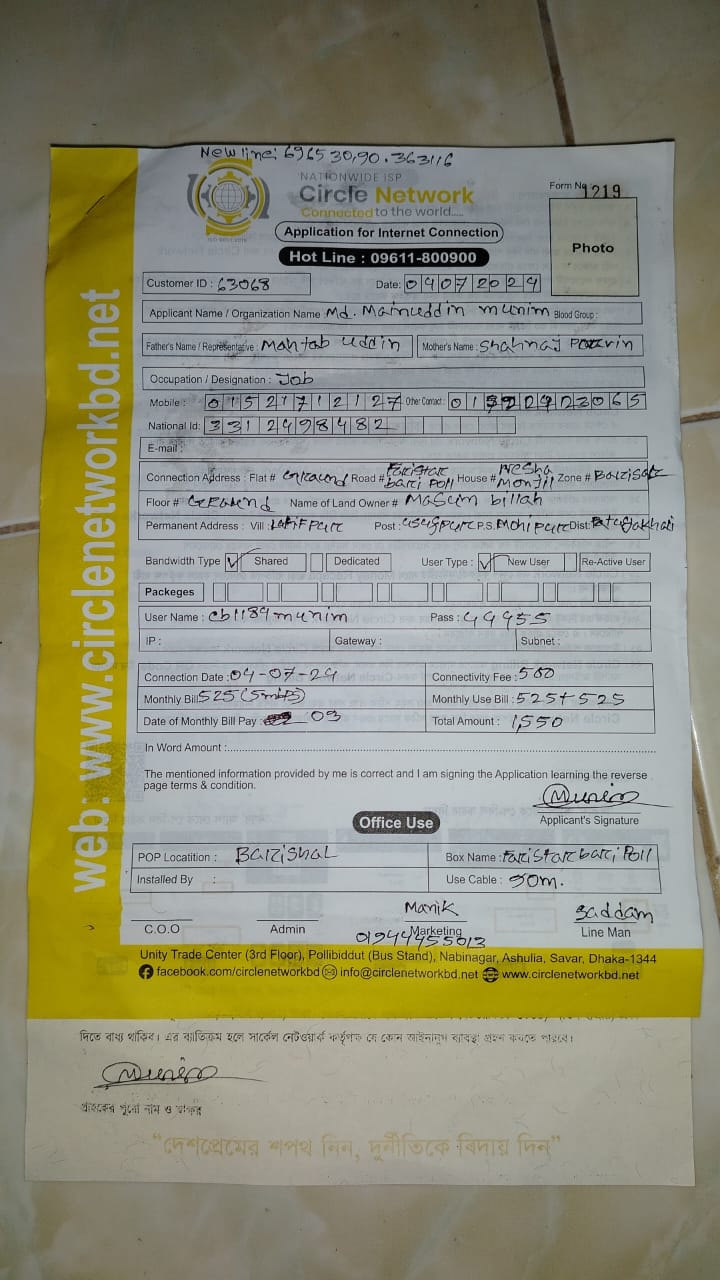 New line: 696530,90.363116
NATIONWIDE ISP
Circle Network
Connected to the world.....
Form No 1219
Application for Internet Connection
Hot Line : 09611-800900
Photo
Customer ID : 63068 Date: 04072024
Applicant Name / Organization Name Md. Mainuddin munim Blood Group :
Father's Name / Representative : Mahtab uddin Mother's Name : Shahnaj Parvin
Occupation / Designation : Job
Mobile : 01521712127 Other Contact : 01922923065
National Id: 3312498482
E-mail :
Connection Address : Flat # Ground Road # Faristar bari Poll House # Nesha Monjil Zone # Barisal
Floor # Ground Name of Land Owner # Masum billah
Permanent Address : Vill : Latifpur Post : P.S. Mohipur Dist:
Bandwidth Type Shared Dedicated User Type : New User Re-Active User
Packeges
User Name : cb1189munim Pass : 44955
IP : Gateway : Subnet :
Connection Date : 04-07-24 Connectivity Fee : 500
Monthly Bill 525 (5mbPS) Monthly Use Bill : 525+525
Date of Monthly Bill Pay : 03 Total Amount : 1,550
In Word Amount :
The mentioned information provided by me is correct and I am signing the Application learning the reverse
page terms & condition.
Munim
Applicant's Signature
Office Use
POP Locatition : Barishal Box Name : Faristar bari Poll
Installed By : Use Cable : 90m.
Manik Saddam
C.O.O Admin Marketing Line Man
01944455013
Unity Trade Center (3rd Floor), Pollibiddut (Bus Stand), Nabinagar, Ashulia, Savar, Dhaka-1344
facebook.com/circlenetworkbd info@circlenetworkbd.net www.circlenetworkbd.net
web: www.circlenetworkbd.net
দিতে বাধ্য থাকিব। এর ব্যতিক্রম হলে সার্কেল নেটওয়ার্ক কর্তৃপক্ষ যে কোন আইনানুগ ব্যবস্থা গ্রহণ করতে পারবে।
Munim
গ্রাহকের পুরো নাম ও স্বাক্ষর
“দেশপ্রেমের শপথ নিন, দুর্নীতিকে বিদায় দিন”